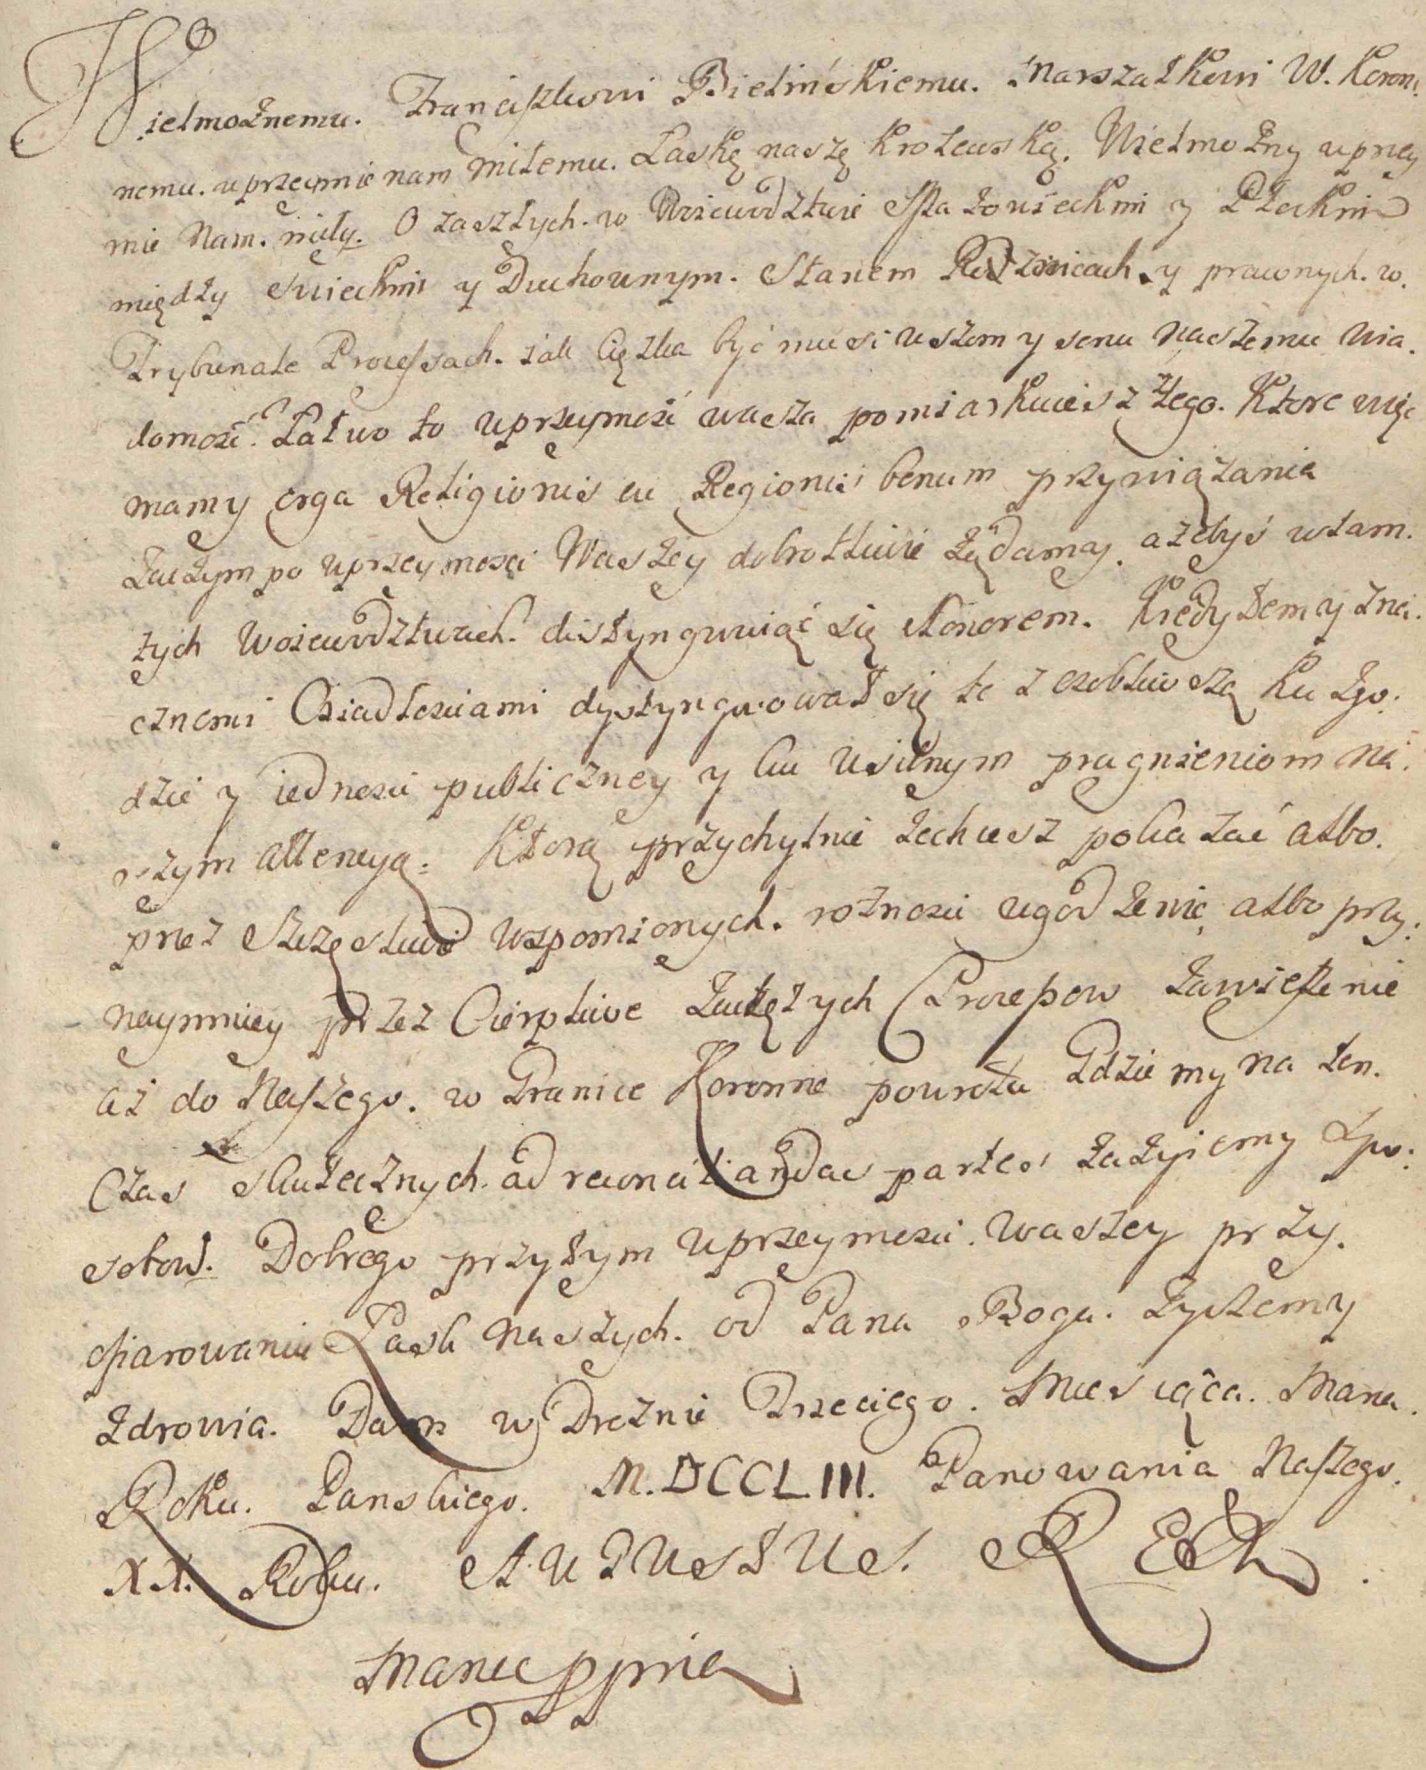 Wielmożnemu. Franciszkowi Bielińskiemu. Marszałkowi W. Koron
nemu. uprzeymie nam miłemu. Łaskę naszę Krolewską. Wielmożny uprzey
mie Nam. miły. O zaszłych. w Woiewodztwie Mazowieckim y Płockim
między Swieckim y Duchownym. Stanem Rożnicach y prawnych. w.
Trybunale Processach. iak Cięzka być musi usłom y sercu Naszemu Wia.
domość? Łatwo to uprzeymość wasza pomiarkuiesz z tego. Ktore więc
mamy erga Religionis eu Regionis bonum przywiązania
Zaczym po uprzeymości Waszey dobrotliwie żądamy. ażebyś w tam.
tych Woiewodztwach. distyngwuiąć się Honorem. Kiedyżemy zna.
cznemi Osiadłościami dystyngwował się te z osobliwszą ku zgo.
dzie y iedności publiczney y ku usilnym pragnieniom Na.
szym attencyą: Ktorą przychylnie zechcesz pokazać albo.
przez Szczęsliwe wspomionych. rożności ugodzenie, albo przy:
naymniey przez Cierpliwe zaczętych Processow zawieszenie
aż do Naszego. w Granice Koronne powrotu Gdzie my na ten.
Czas skutecznych. ad reconciliandas partes zażyiemy spo:
sobow. Dobrego przytym uprzeymości. waszey przy.
ofiarowaniu Łask naszych. od Pana Boga. życzemy
zdrowia. Dan w Dreznie Trzeciego. Miesiąca. Marca.
Roku. Panskiego. M.DCCLIII. Panowania Naszego.
XX. Roku. AUGUSTUS. REX
Manu ppria